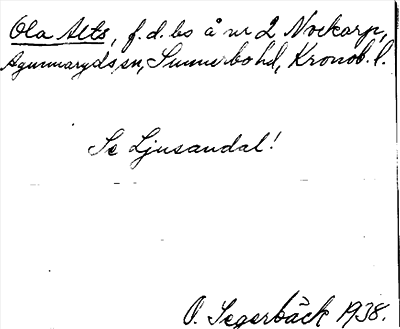 Ola Alts, f.d. bo å nr 2 Nockarp,
Agunnaryds sn, Sunnerbo hd, Kronob. l.
Se Ljusandal!
O. Segerbäck 1938.